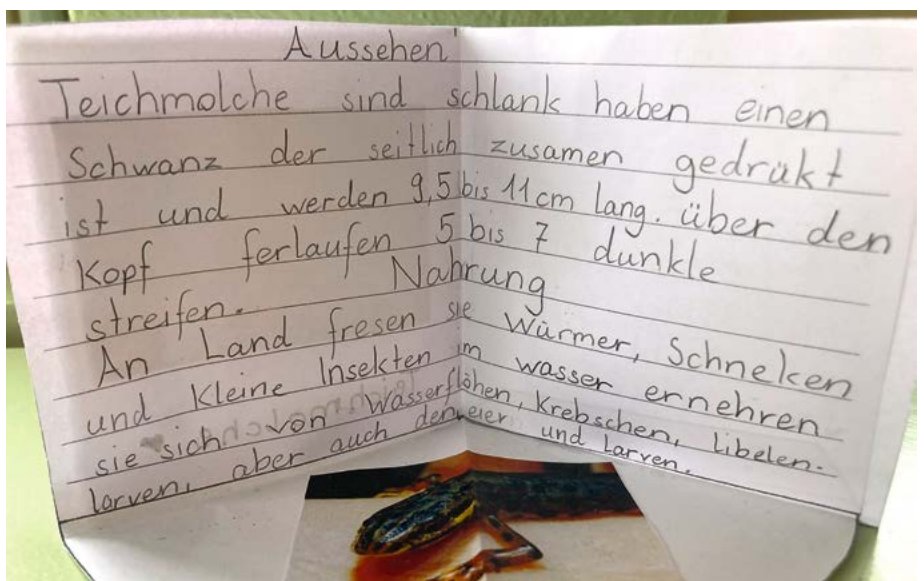 Aussehen
Teichmolche sind schlank haben einen
Schwanz der seitlich zusamen gedrükt
ist und werden 9,5 bis 11 cm lang. über den
Kopf ferlaufen 5 bis 7 dunkle
streifen. Nahrung
An Land fresen sie Würmer, Schneken
und Kleine Insekten im wasser ernehren
sie sich von Wasserflöhen, Krebschen, Libelen-
larven, aber auch deren eier und Larven.